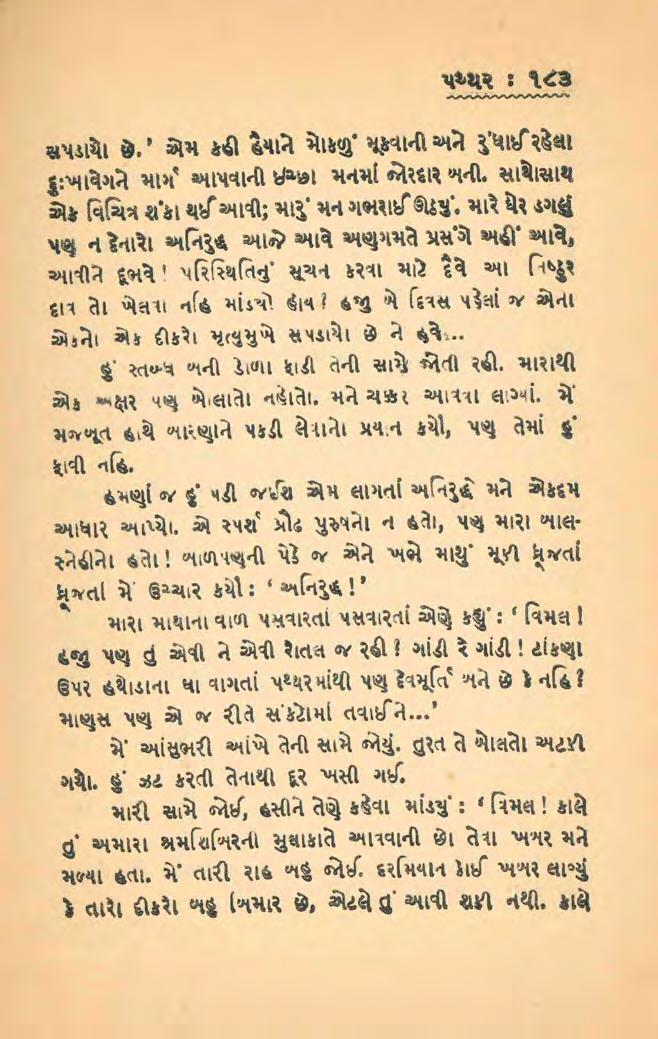 પથ્થર : ૧૮૩
સપડાયો છે.' એમ કહી હૈયાને મોકળું મૂકવાની અને રુંધાઈ રહેલા
દુઃખાવેગને માર્ગ આપવાની ઇચ્છા મનમાં જોરદાર બની. સાથોસાથ
એક વિચિત્ર શંકા થઈ આવી; મારું મન ગભરાઈ ઊઠ્યું. મારે ઘેર ડગલું
પણ ન દેનારો અનિરુદ્ધ આજે આવે અણગમતે પ્રસંગે અહીં આવે,
આવીને દૂભવે! પરિસ્થિતિનું સૂચન કરવા માટે દૈવે આ નિષ્ઠુર
દાવ તો ખેલવા નહિ માંડ્યો હોય? હજુ બે દિવસ પહેલાં જ એના
એકનો એક દીકરો મૃત્યુમુખે સપડાયો છે ને હવે...
હું સ્તબ્ધ બની ડોળા ફાડી તેની સામે જોતી રહી. મારાથી
એક અક્ષર પણ બોલાતો નહોતો. મને ચક્કર આવવા લાગ્યાં. મેં
મજબૂત હાથે બારણાને પકડી લેવાનો પ્રયાન કર્યો, પણ તેમાં હું
ફાવી નહિ.
હમણાં જ હું પડી જઈશ એમ લાગતાં અનિરુદ્ધે મને એકદમ
આધાર આપ્યો. એ સ્પર્શ પ્રૌઢ પુરુષનો ન હતો, પણ મારા બાલ-
સ્નેહીનો હતો! બાળપણની પેઠે જ એને ખભે માથું મૂકી ધ્રૂજતાં
ધ્રૂજતાં મેં ઉચ્ચાર કર્યો : ' અનિરુદ્ધ!'
મારા માથાના વાળ પસવારતાં પસવારતાં એણે કહ્યું : ' વિમલ!
હજુ પણ તું એવી ને એવી રોતલ જ રહી? ગાંડી રે ગાંડી! ટાંકણા
ઉપર હથોડાના ઘા વાગતાં પથ્થરમાંથી પણ દેવમૂર્તિ બને છે કે નહિ?
માણસ પણ એ જ રીતે સંકટોમાં તવાઈને...'
મેં આંસુભરી આંખે તેની સામે જોયું. તુરત તે બોલતો અટકી
ગયો. હું ઝટ કરતી તેનાથી દૂર ખસી ગઈ.
મારી સામે જોઈ, હસીને તેણે કહેવા માંડ્યું : ' વિમલ! કાલે
તું અમારા શ્રમશિબિરની મુલાકાતે આવવાની છો તેવા ખબર મને
મળ્યા હતા. મેં તારી રાહ બહુ જોઈ. દરમિયાન કોઈ ખબર લાવ્યું
કે તારો દીકરો બહુ બિમાર છે, એટલે તું આવી શકી નથી. કાલે